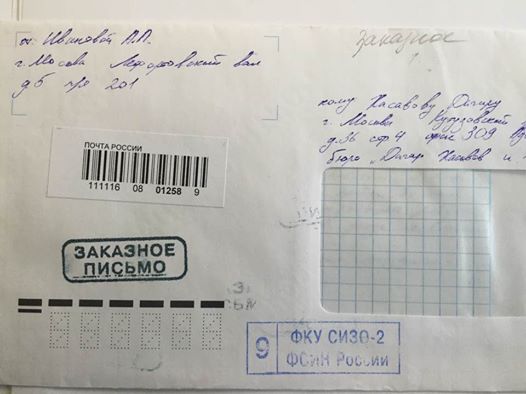 от: Ивановой А.П.
г. Москва Лефортовский вал
д 5 п/я 201
заказное
кому Хасавову Дагиру
г. Москва Кутузовский
д. 36 стр 4 офис 309
бюро „Дагир Хасавов и
ПОЧТА РОССИИ
111116 08 01258 9
ЗАКАЗНОЕ
ПИСЬМО
9
ФКУ СИЗО-2
ФСИН России